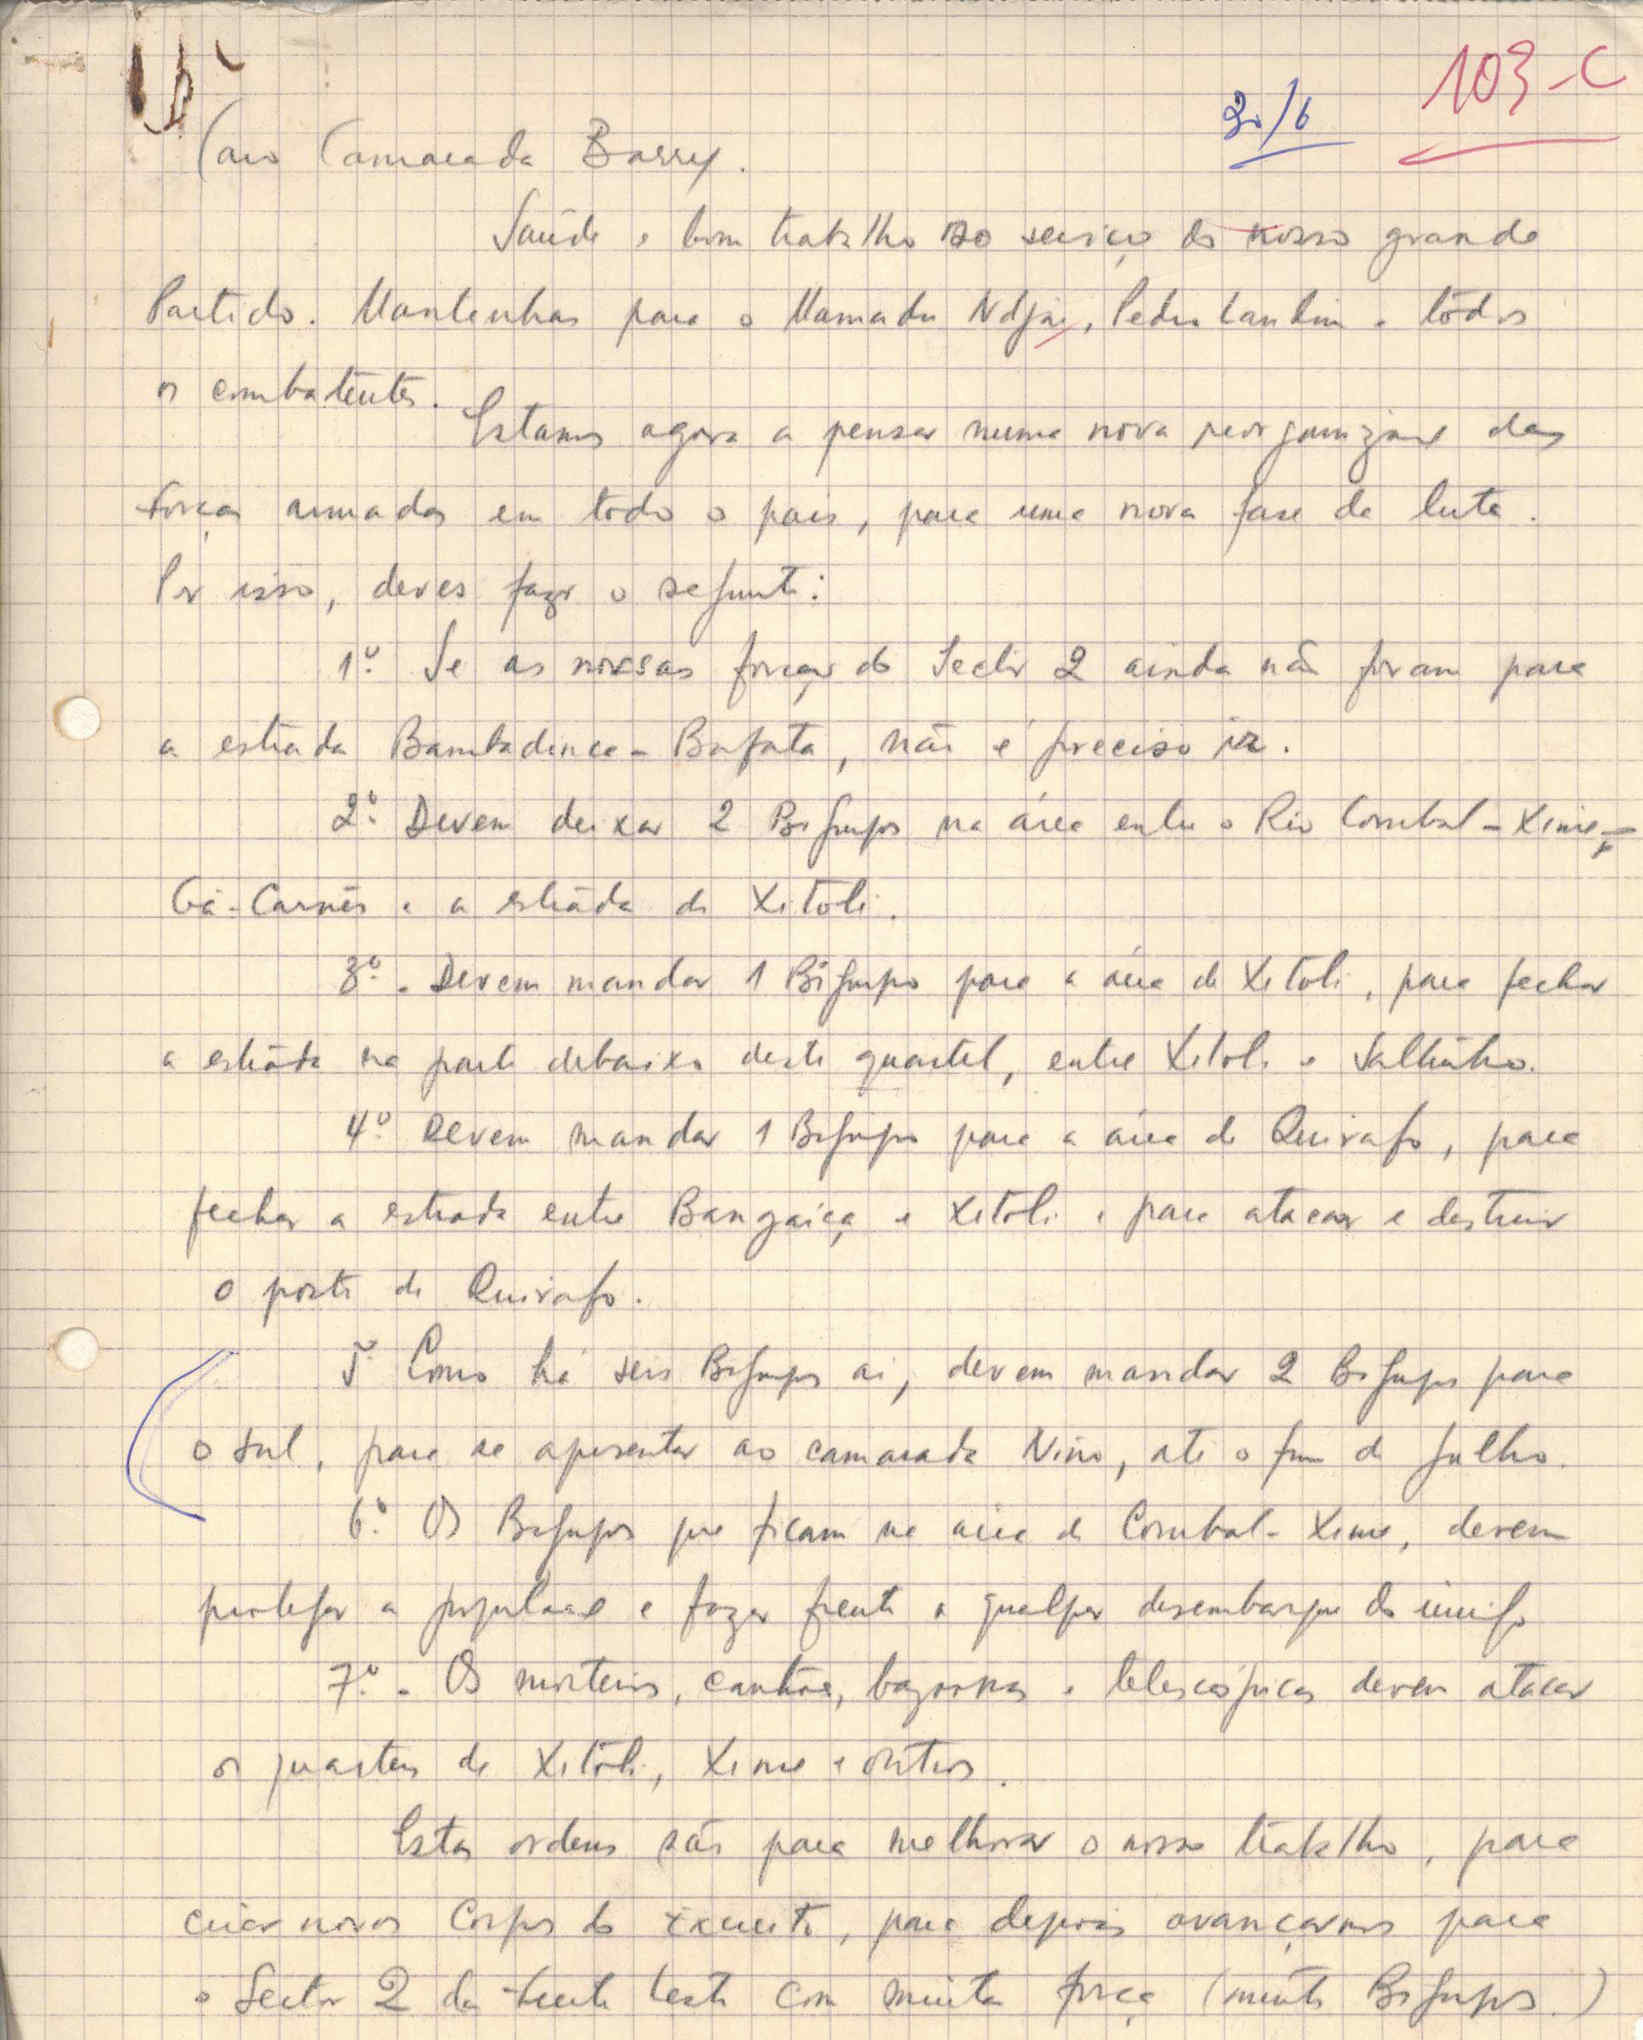 103-C
30/6
Caro Camarada Barry.
Saúde e bom trabalho ao serviço do nosso grande
Partido. Mantenhas para o Mamadu Ndjai, Pedro Landim e todos
os combatentes.
Estamos agora a pensar numa nova reorganização das
forças armadas em todo o país, para uma nova fase da luta.
Por isso, deves fazer o seguinte:
1º. Se as nossas forças do Sector 2 ainda não foram para
a estrada Bambadinca-Bafatá, não é preciso ir.
2º. Devem deixar 2 Bigrupos na área entre o Rio Corubal-Xime-
Gã-Carnês e a estrada de Xitoli.
3º. Devem mandar 1 Bigrupo para a área de Xitoli, para fechar
a estrada na parte debaixo deste quartel, entre Xitoli e Saltinho.
4º. Devem mandar 1 Bigrupo para a área de Quirafo, para
fechar a estrada entre Bangaiça e Xitoli e para atacar e destruir
o posto de Quirafo.
5º Como há seis Bigrupos aí, devem mandar 2 Bigrupos para
o Sul, para se apresentar ao camarada Nino, até o fim de Julho.
6º. Os Bigrupos que ficam na área de Corubal-Xime, devem
proteger a população e fazer frente a qualquer desembarque do inimigo
7º. Os morteiros, canhões, bazookas e telescópicas devem atacar
os quarteis de Xitoli, Xime e outros.
Estas ordens são para melhorar o nosso trabalho, para
criar novos Corpos do Exército, para depois avançarmos para
o Sector 2 da Frente Leste com muita força (muitos Bigrupos.)